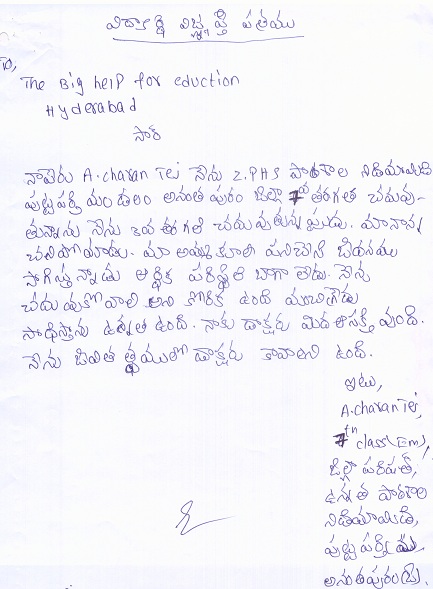 విద్యార్థి విజ్ఞప్తి పత్రము
To,
The Big help for eduction
Hyderabad
సార్
నాపేరు A.charan Tej నేను Z.PHS పాఠశాల నిడిమామిడి
పుట్టపర్తి మండలం అనంత పురం జిల్లా 7వ తరగతి చదువు-
తున్నాను నేను 3వ తరగతి చదువుతున్నప్పుడు. మా నాన్న
చనిపోయాడు. మా అమ్మ కూలి పనిచేసి జీవనము
సాగిస్తున్నాడు ఆర్థిక పరిస్థితి బాగా లేదు. నేను
చదువుకోవాలి అని కోరిక ఉంది
సాధిస్తాను ఉన్నత ఉంది. నాకు డాక్టరు మిద ఆసక్తి వుంది.
నేను జీవిత త్థములో డాక్టరు కావాలని ఉంది.
ఇటు,
A.charan Tej,
7th class (Em),
జిల్లా పరిషత్,
ఉన్నత పాఠశాల
నిడిమామిడి,
పుట్టపర్తి (మ),
అనంతపురం (జి).